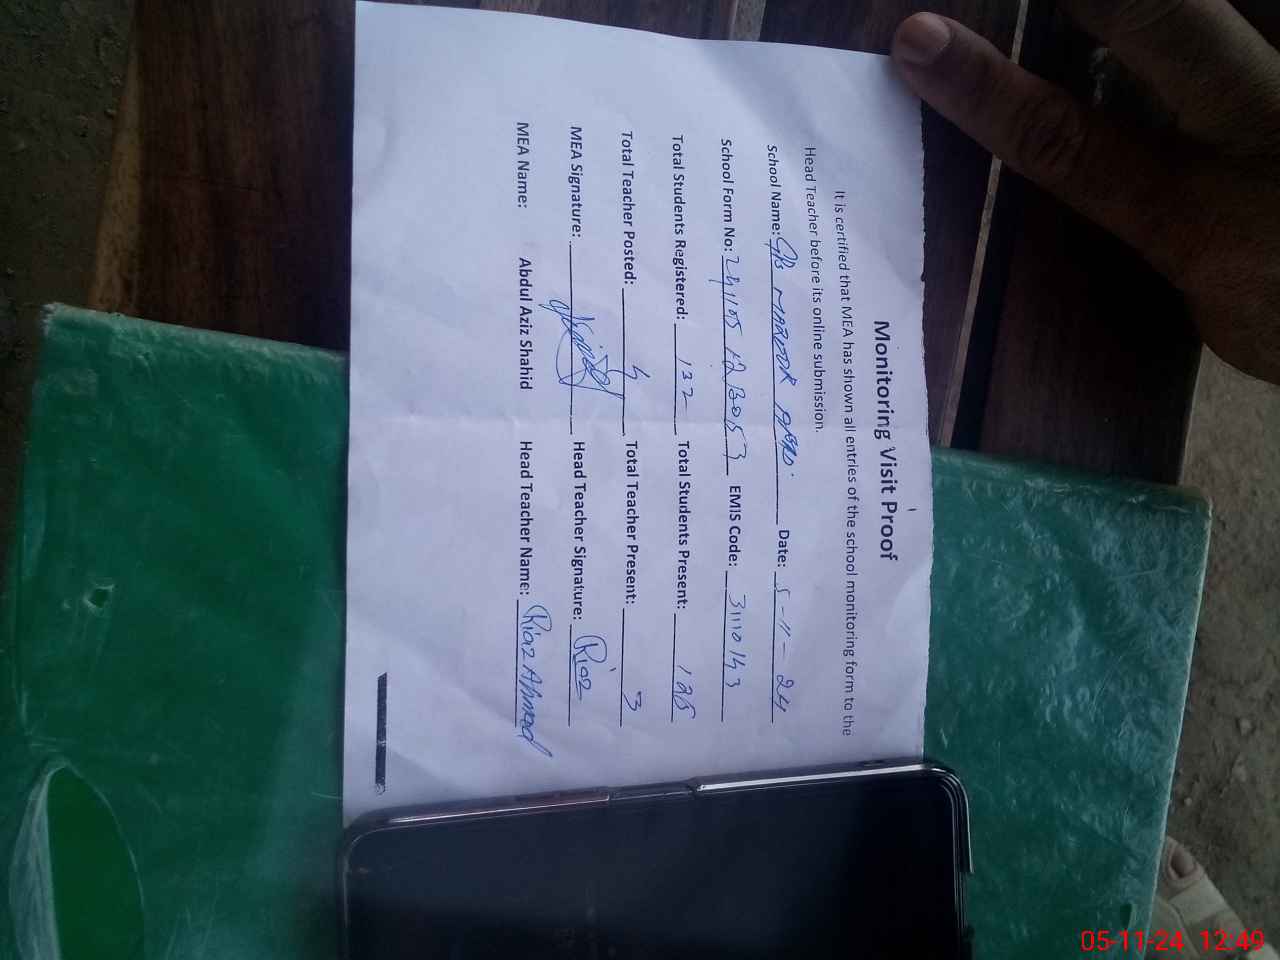 Monitoring Visit Proof
It is certified that MEA has shown all entries of the school monitoring form to the
Head Teacher before its online submission.
School Name: Date: 5-11-24
School Form No: EMIS Code: 31110143
Total Students Registered: 132 Total Students Present: 125
Total Teacher Posted: 4 Total Teacher Present: 3
MEA Signature: Head Teacher Signature: Riaz
MEA Name: Abdul Aziz Shahid Head Teacher Name: Riaz Ahmed
05-11-24 12:49